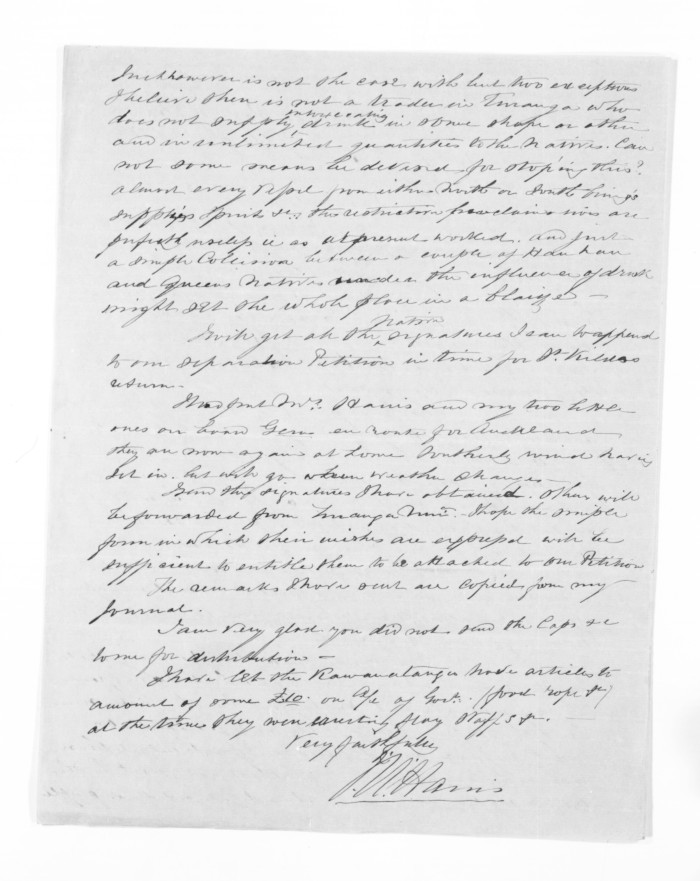 Such however is not the case with but two exceptions
I believe there is not a trader in Turanga who
does not supply intoxicating drink in some shape or other
and in unlimited quantities to the Natives. Can
not some means be devised for stoping this?
almost every vessel from either North or South brings
supplies Spirits &c the restriction proclamations are
perfectly useless ie as at present worked. and just
a simple Collision between a couple of Hau hau
and Queens Natives under the influence of drink
might set the whole place in a blaize —
I will get all the Native signatures I can to append
to our separation Petition in time for St Kildas
return —
I had sent Mrs. Harris and my two little
ones on board Gem en route for Auckland
they are now again at home Southerly wind having
set in. but will go when weather changes —
I send the signatures I have obtained. Others will
be forwarded from Turanga. I hope the simple
form in which their wishes are expressed will be
sufficient to entitle them to be attached to our Petition
The remarks I have sent are copied from my
Journal.
I am very glad you did not send the Caps &c
to me for distribution —
I have let the Kawanatanga have articles to
amount of some £10. on a/c of Govt. (food rope &c)
at the time they were erecting flag staffs &c. —
Very faithfully
J. W. Harris